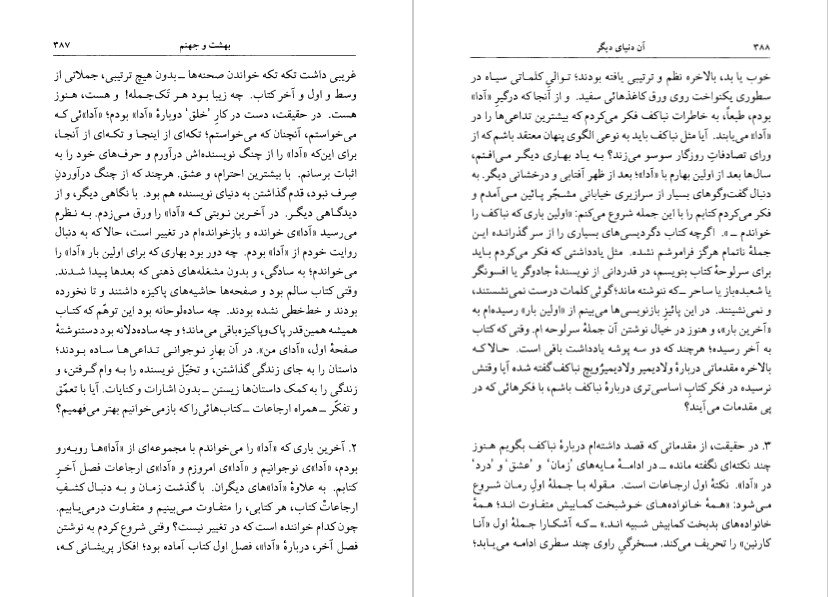 بهشت و جهنم ۳۸۷
غریبی داشت تکه تکه خواندن صحنه‌ها ــ بدون هیچ ترتیبی، جملاتی از
وسط و اول و آخر کتاب. چه زیبا بود هر تَک‌جمله! و هست، هنوز
هست. در حقیقت، دست در کارِ 'خلق' دوبارهٔ «آدا» بودم؛ «آدا»ئی که
می‌خواستم، آنچنان که می‌خواستم؛ تکه‌ای از اینجا و تکه‌ای از آنجا،
برای این‌که «آدا» را از چنگ نویسنده‌اش درآورم و حرف‌های خود را به
اثبات برسانم. با بیشترین احترام، و عشق. هرچند که از چنگ درآوردنِ
صِرف نبود، قدم گذاشتن به دنیای نویسنده هم بود. با نگاهی دیگر، و از
دیدگاهی دیگر. در آخرین نوبتی که «آدا» را ورق می‌زدم. به نظرم
می‌رسید «آدا»ی خوانده و بازخوانده‌ام در تغییر است، حالا که به دنبال
روایت خودم از «آدا» بودم. چه دور بود بهاری که برای اولین بار «آدا» را
می‌خواندم؛ به سادگی، و بدون مشغله‌های ذهنی که بعدها پیدا شدند.
وقتی کتاب سالم بود و صفحه‌ها حاشیه‌های پاکیزه داشتند و تا نخورده
بودند و خط‌خطی نشده بودند. چه ساده‌لوحانه بود این توهّم که کتاب
همیشه همین‌قدر پاک‌وپاکیزه باقی می‌ماند؛ و چه ساده‌دلانه بود دستنوشتهٔ
صفحهٔ اول، «آدای من». در آن بهارِ نوجوانی تداعی‌ها ساده بودند؛
داستان را به جای زندگی گذاشتن، و تخیّل نویسنده را به وام گرفتن، و
زندگی را به کمک داستان‌ها زیستن ــ بدون اشارات و کنایات. آیا با تعمّق
و تفکّر ــ همراه ارجاعات ــ کتاب‌هائی را که بازمی‌خوانیم بهتر می‌فهمیم؟
۲. آخرین باری که «آدا» را می‌خواندم با مجموعه‌ای از «آدا»ها روبه‌رو
بودم، «آدا»ی نوجوانیم و «آدا»ی امروزم و «آدا»ی ارجاعات فصل آخرِ
کتابم. به علاوهٔ «آدا»های دیگران. با گذشت زمان و به دنبال کشفِ
ارجاعاتْ کتاب، هر کتابی، را متفاوت می‌بینیم و متفاوت درمی‌یابیم.
چون کدام خواننده است که در تغییر نیست؟ وقتی شروع کردم به نوشتن
فصل آخر، دربارهٔ «آدا»، فصل اول کتاب آماده بود؛ افکار پریشانی که،
۳۸۸ آن دنیای دیگر
خوب یا بد، بالاخره نظم و ترتیبی یافته بودند؛ توالیِ کلماتی سیاه در
سطوری یکنواخت روی ورق کاغذهائی سفید. و از آنجا که درگیرِ «آدا»
بودم، طبعاً، به خاطرات نباکف فکر می‌کردم که بیشترین تداعی‌ها را در
«آدا» می‌یابند. آیا مثل نباکف باید به نوعی الگوی پنهان معتقد باشم که از
ورای تصادفاتِ روزگار سوسو می‌زند؟ به یاد بهاری دیگر می‌افتم،
سال‌ها بعد از اولین بهارم با «آدا»؛ بعد از ظهر آفتابی و درخشانی دیگر. به
دنبال گفت‌وگوهای بسیار از سرازیری خیابانی مشجّر پائین می‌آمدم و
فکر می‌کردم کتابم را با این جمله شروع می‌کنم: «اولین باری که نباکف را
خواندم ــ». اگرچه کتاب دگردیسی‌های بسیاری را از سر گذرانده این
جملهٔ ناتمام هرگز فراموشم نشده. مثل یادداشتی که فکر می‌کردم باید
برای سرلوحهٔ کتاب بنویسم، در قدردانی از نویسندهٔ جادوگر یا افسونگر
یا شعبده‌باز یا ساحر ــ که ننوشته ماند؛ گوئی کلمات درست نمی‌نشستند،
و نمی‌نشینند. در این پائیزِ بازنویسی‌ها می‌بینم از «اولین بار» رسیده‌ام به
«آخرین بار»، و هنوز در خیال نوشتن آن جملهٔ سرلوحه ام. وقتی که کتاب
به آخر رسیده؛ هرچند که دو سه پوشه یادداشت باقی است. حالا که
بالاخره مقدماتی دربارهٔ ولادیمیر ولادیمیرُویچ نباکف گفته شده آیا وقتش
نرسیده در فکر کتابِ اساسی‌تری دربارهٔ نباکف باشم، با فکرهائی که در
پی مقدمات می‌آیند؟
۳. در حقیقت، از مقدماتی که قصد داشته‌ام دربارهٔ نباکف بگویم هنوز
چند نکته‌ای نگفته مانده ــ در ادامهٔ مایه‌های 'زمان' و 'عشق' و 'درد'
در «آدا». نکتهٔ اول ارجاعات است. مقوله با جملهٔ اولِ رمان شروع
می‌شود: «همهٔ خانواده‌های خوشبخت کمابیش متفاوت اند؛ همهٔ
خانواده‌های بدبخت کمابیش شبیه اند.» ــ که آشکارا جملهٔ اول «آنا
کارنین» را تحریف می‌کند. مسخرگیِ راوی چند سطری ادامه می‌یابد؛